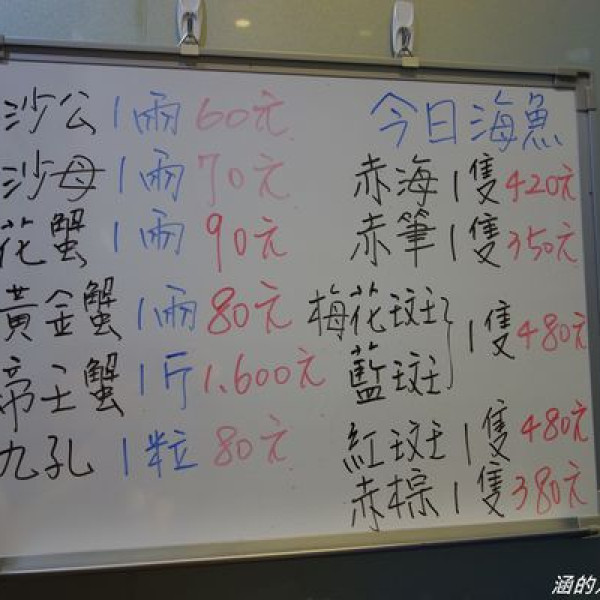 沙公1兩60元
沙母1兩70元
花蟹1兩90元
黃金蟹1兩80元
帝王蟹1斤1.600元
九孔1粒80元
今日海魚
赤海1隻420元
赤筆1隻350元
梅花斑
藍斑
1隻480元
紅斑1隻480元
赤棕1隻380元
涵的